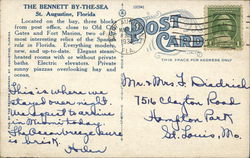 THE BENNETT BY-THE-SEA
St. Augustine, Florida
Located on the bay, three blocks
from post office, close to Old City
Gates and Fort Marion, two of the
most interesting relics of the Spanish
rule in Florida. Everything modern,
new, and up-to-date. Elegant steam
heated rooms with or without private
baths. Electric elevators. Private
sunny piazzas overlooking bay and
ocean.
This is where we
stayed over night.
We expect to arrive
in
The Ocean breeze here
is brisk.
POST
CARD
THIS SPACE FOR ADDRESS ONLY
Mr. & Mrs. F. Diedrich
7514 Clayton Road
Hampton Park
St. Louis, Mo.